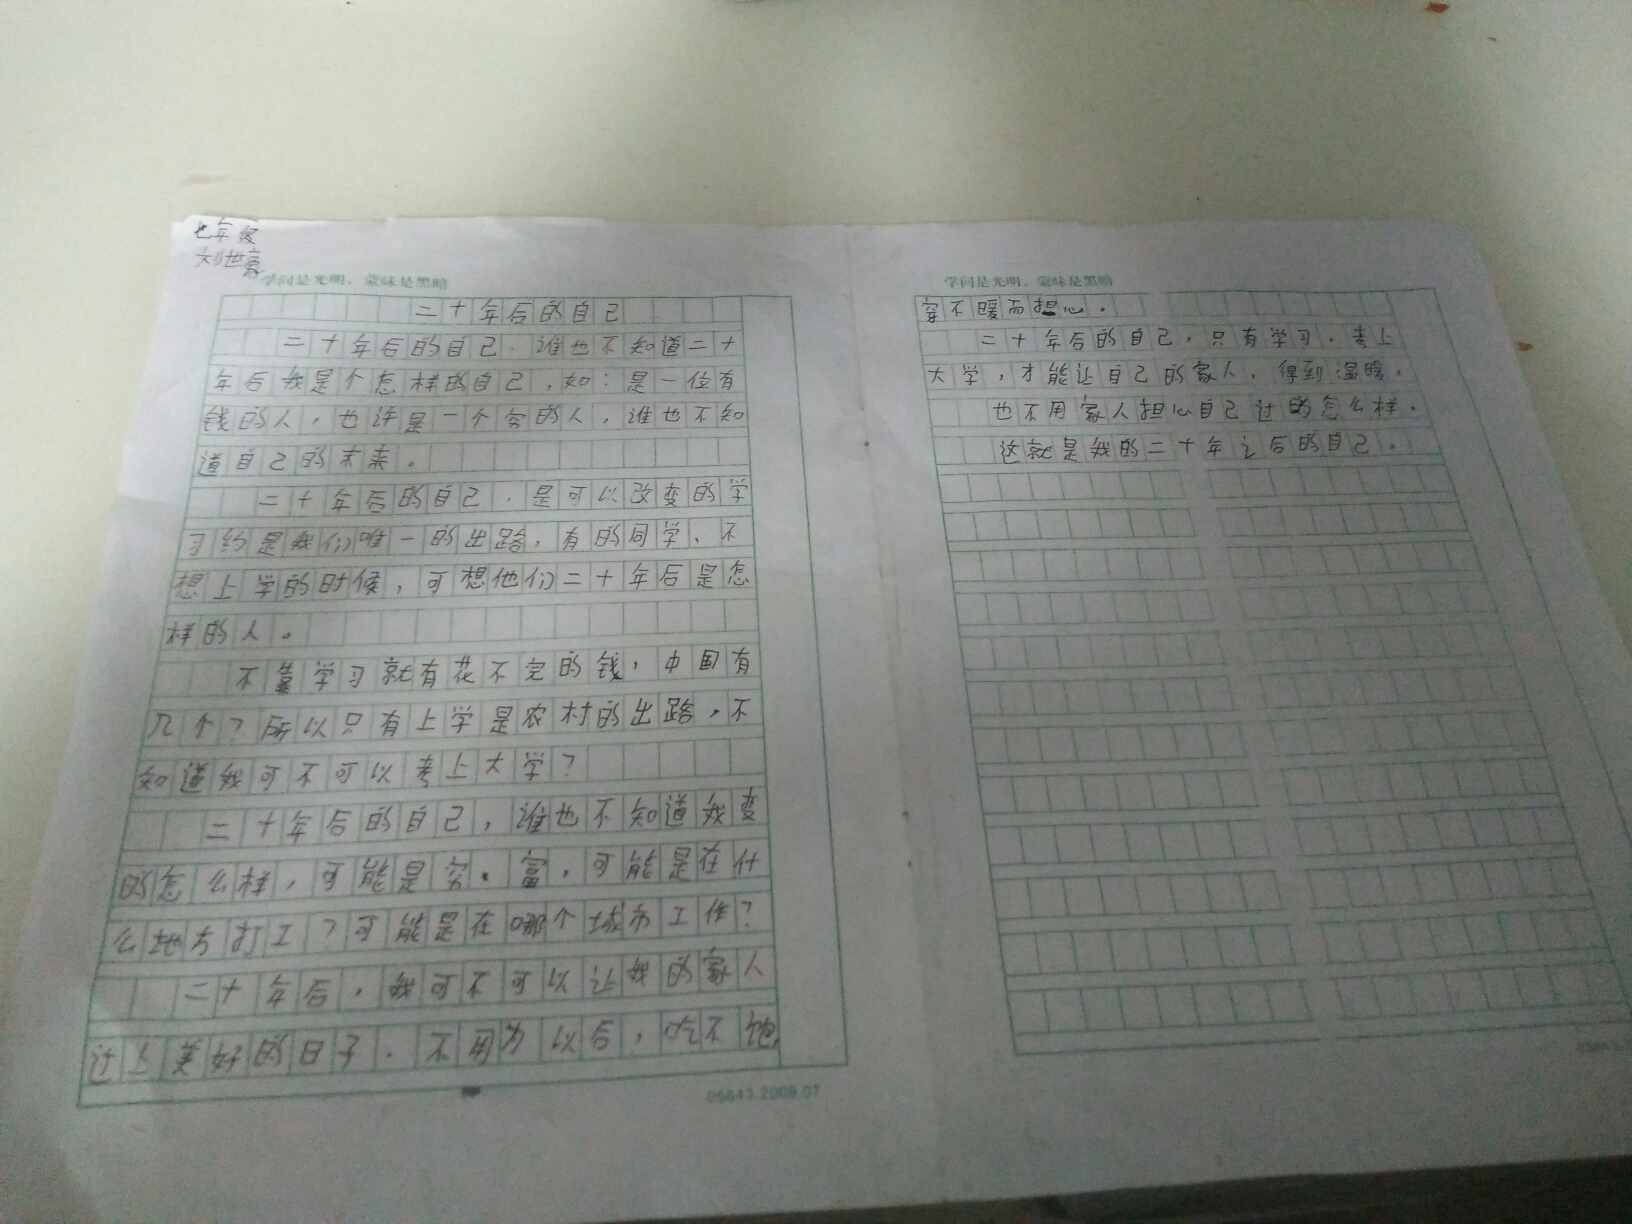 七年级
刘世豪
学问是光明，蒙昧是黑暗
二十年后的自己
二十年后的自己．谁也不知道二十
年后我是个怎样的自己，如：是一位有
钱的人，也许是一个穷的人，谁也不知
道自己的未来。
二十年后的自己．是可以改变的学
习约是我们唯一的出路，有的同学、不
想上学的时候，可想他们二十年后是怎
样的人。
不靠学习就有花不完的钱，中国有
几个？所以只有上学是农村的出路，不
知道我可不可以考上大学？
二十年后的自己，谁也不知道我变
的怎么样，可能是穷．富，可能是在什
么地方打工？可能是在哪个城市工作？
二十年后，我可不可以让我的家人
过上美好的日子．不用为以后，吃不饱
05643.2009.07
学问是光明，蒙昧是黑暗
穿不暖而担心。
二十年后的自己，只有学习．考上
大学，才能让自己的家人．得到温暖．
也不用家人担心自己过的怎么样．
这就是我的二十年之后的自己．